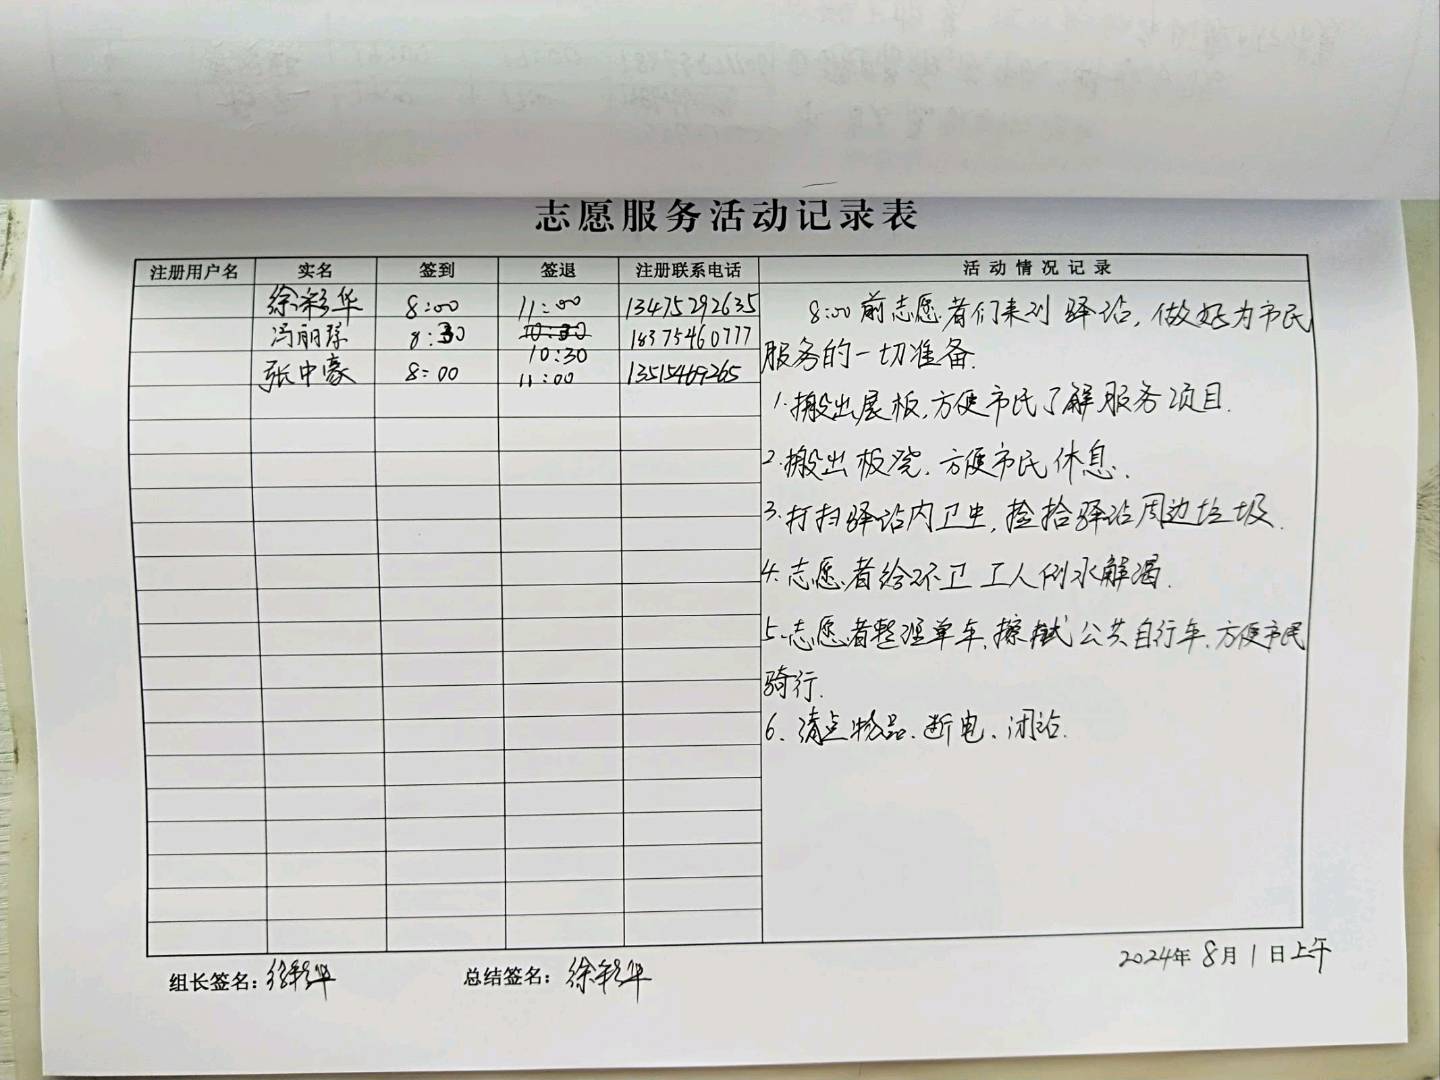 志愿服务活动记录表
注册用户名 实名 签到 签退 注册联系电话 活动情况记录
徐彩华 8:00 11:00 13475292635
冯丽 8:30 10:30 18375460777
10:30
张中豪 8:00 11:00 13515469265
8:00前志愿者们来到驿站,做好为市民
服务的一切准备.
1.搬出展板,方便市民了解服务项目.
2.搬出板凳.方便市民休息.
3.打扫驿站内卫生,捡拾驿站周边垃圾.
4.志愿者给环卫工人倒水解渴.
5.志愿者整理单车,擦拭公共自行车.方便市民
骑行.
6、清点物品、断电、闭站.
2024年8月1日上午
组长签名:徐彩华 总结签名:徐彩华